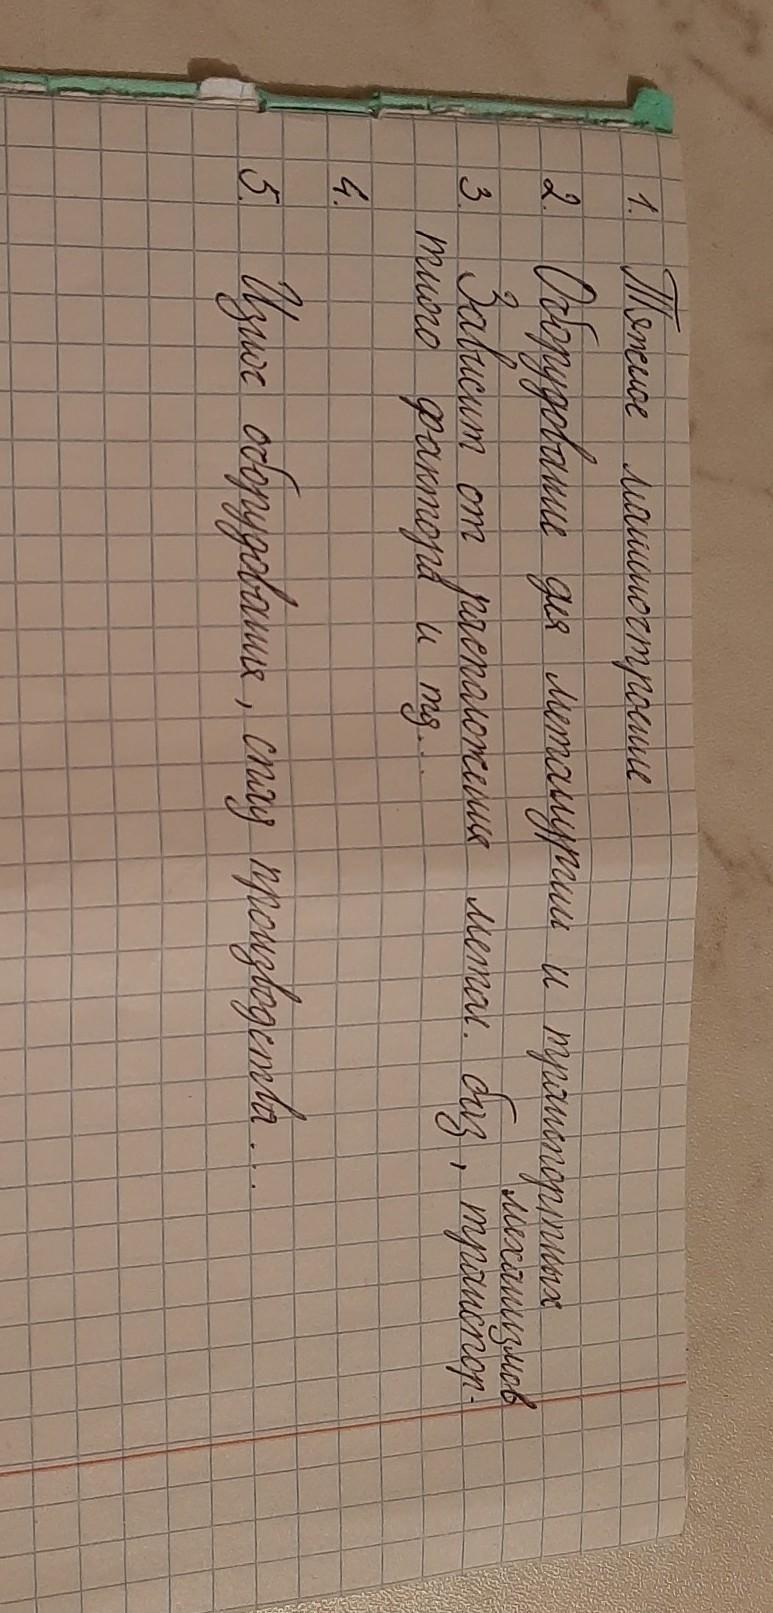 1. Тяжелое машиностроение
2. Оборудование для металлургии и транспортных
механизмов
3. Зависит от расположения метал. баз, транспор-
тного фактора и тд...
4.
5. Износ оборудования, спад производства...